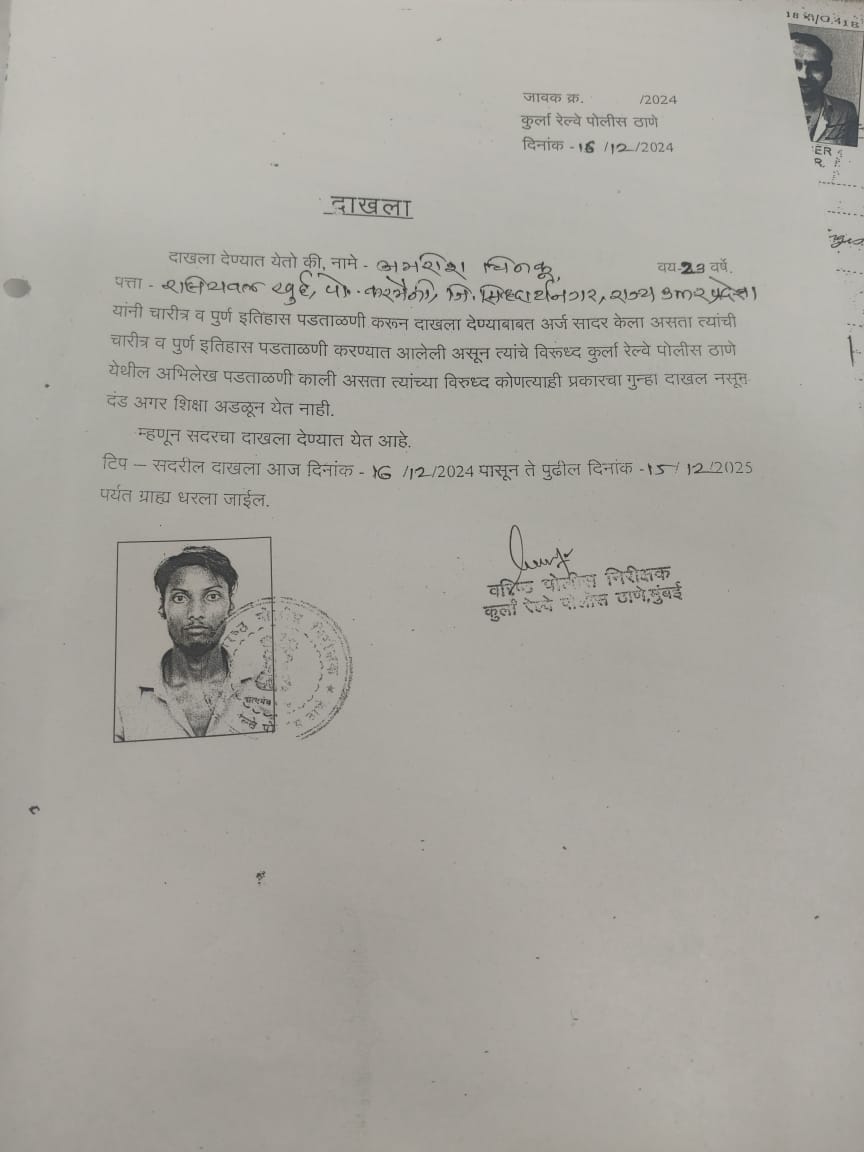 जावक क्र. /2024
कुर्ला रेल्वे पोलीस ठाणे
दिनांक - 16 /12 /2024
दाखला
दाखला देण्यात येतो की, नामे - अमरीश चिनकू, वय-23 वर्षे.
पत्ता - खुर्द, पो. करमैनी, जि. सिध्दार्थनगर, राज्य उत्तर प्रदेश
यांनी चारीत्र व पुर्ण इतिहास पडताळणी करून दाखला देण्याबाबत अर्ज सादर केला असता त्यांची
चारीत्र व पुर्ण इतिहास पडताळणी करण्यात आलेली असून त्यांचे विरूध्द कुर्ला रेल्वे पोलीस ठाणे
येथील अभिलेख पडताळणी काली असता त्यांच्या विरुध्द कोणत्याही प्रकारचा गुन्हा दाखल नसून
दंड अगर शिक्षा अडळून येत नाही.
म्हणून सदरचा दाखला देण्यात येत आहे.
टिप – सदरील दाखला आज दिनांक - 16 /12/2024 पासून ते पुढील दिनांक -15/ 12/2025
पर्यत ग्राह्य धरला जाईल.
वरिष्ठ पोलीस निरीक्षक
कुर्ला रेल्वे पोलीस ठाणे,मुंबई